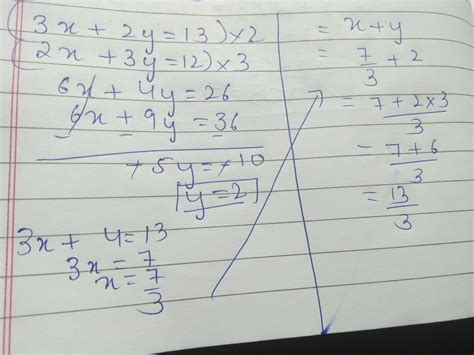 (3x + 2y = 13) × 2
(2x + 3y = 12) × 3
6x + 4y = 26
6x + 9y = 36
− − −
+ 5y = +10
y = 2
3x + 4 = 13
3x = 7
x = 7/3
= x + y
= 7/3 + 2
= 7 + 2 × 3 / 3
= 7 + 6 / 3
= 13/3